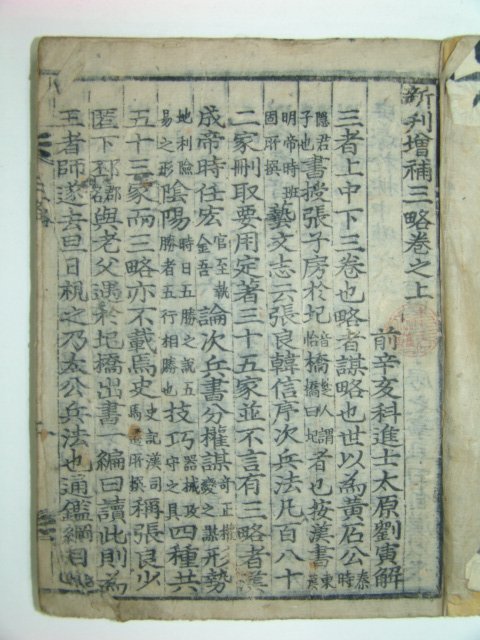 新刊增補三略卷之上
前辛亥科進士太原劉寅解
三者上中下三卷也略者謀略也世以為黃石公秦時
隱君子也書授張子房於圯音怡楚人謂橋曰圯橋者也按漢書東漢
明帝時班固所撰藝文志云張良韓信序次兵法凡百八十
二家刪取要用定著三十五家並不言有三略者
成帝時任宏官至執金吾論次兵書分權謀奇正權變之謀形勢
地利險易之形陰陽時日五勝之說五勝者五行相勝也技巧器械及攻守之具四種共
五十三家而三略亦不載焉史史記漢司馬遷所撰稱張良少
匿下邳郡名與老父遇於圯橋出書一編曰讀此則為
王者師遂去旦日視之乃太公兵法也通鑑綱目